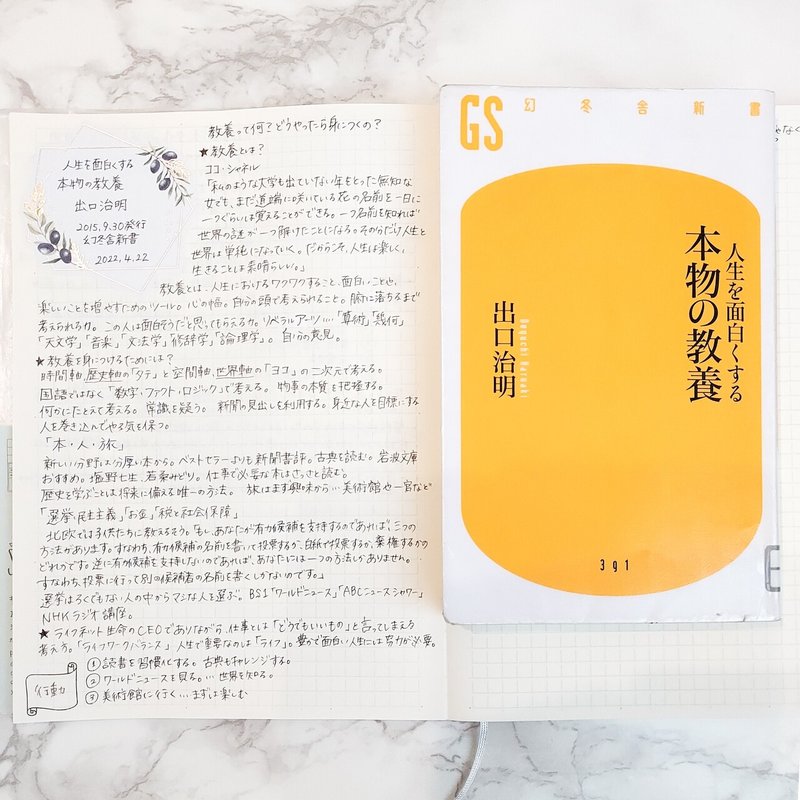 教養って何?どうやったら身につくの?
人生を面白くする
本物の教養
出口治明
2015.9.30発行
幻冬舎新書
2022.4.22
★教養とは?
ココ・シャネル
「私のような大学も出ていない年をとった無知な
女でも、まだ道端に咲いている花の名前を一日に
一つぐらいは覚えることができる。一つ名前を知れば
世界の謎が一つ解けたことになる。その分だけ人生と
世界は単純になっていく。だからこそ、人生は楽しく、
生きることは素晴らしい。」
教養とは、人生におけるワクワクすること、面白いことや、
楽しいことを増やすためのツール。心の幅。自分の頭で考えられること。腑に落ちるまで
考えられるか。この人は面白そうだと思ってもらえるか。リベラルアーツ…「算術」「幾何」
「天文学」「音楽」「文法学」「修辞学」「論理学」。自分の意見。
★教養を身につけるためには?
時間軸、歴史軸の「タテ」と空間軸、世界軸の「ヨコ」の二次元で考える。
国語ではなく「数字・ファクト・ロジック」で考える。物事の本質を把握する。
何かにたとえて考える。常識を疑う。新聞の見出しを利用する。身近な人を目標にする
人を巻き込んでやる気を保つ。
「本・人・旅」
新しい分野は分厚い本から。ベストセラーよりも新聞書評。古典を読む。岩波文庫
おすすめ。塩野七生、若桑みどり。仕事で必要な本はさっさと読む。
歴史を学ぶことは将来に備える唯一の方法。旅はまず興味から…美術館や一宮など
「選挙、民主主義」「お金」「税と社会保障」
北欧では子供たちに教えるそう。「もし、あなたが有力候補を支持するのであれば、三つの
方法があります。すなわち、有力候補の名前を書いて投票するか、白紙で投票するか、棄権するかの
どれかです。逆に有力候補を支持しないのであれば、あなたには一つの方法しかありません。
すなわち、投票に行って別の候補者の名前を書くしかないのです。」
選挙はろくでもない人の中からマシな人を選ぶ。BS1「ワールドニュース」「ABCニュースシャワー」
NHKラジオ講座。
★ライフネット生命のCEOでありながら、仕事とは「どうでもいいもの」と言ってしまえる
考え方。「ライフワークバランス」人生で重要なのは「ライフ」。豊かで面白い人生には努力が必要。
行動
①読書を習慣化する。古典もチャレンジする。
②ワールドニュースを見る。…世界を知る。
③美術館に行く…まずは楽しむ
GS 幻冬舎新書
人生を面白くする
本物の教養
出口治明
Deguchi Haruaki
391
E